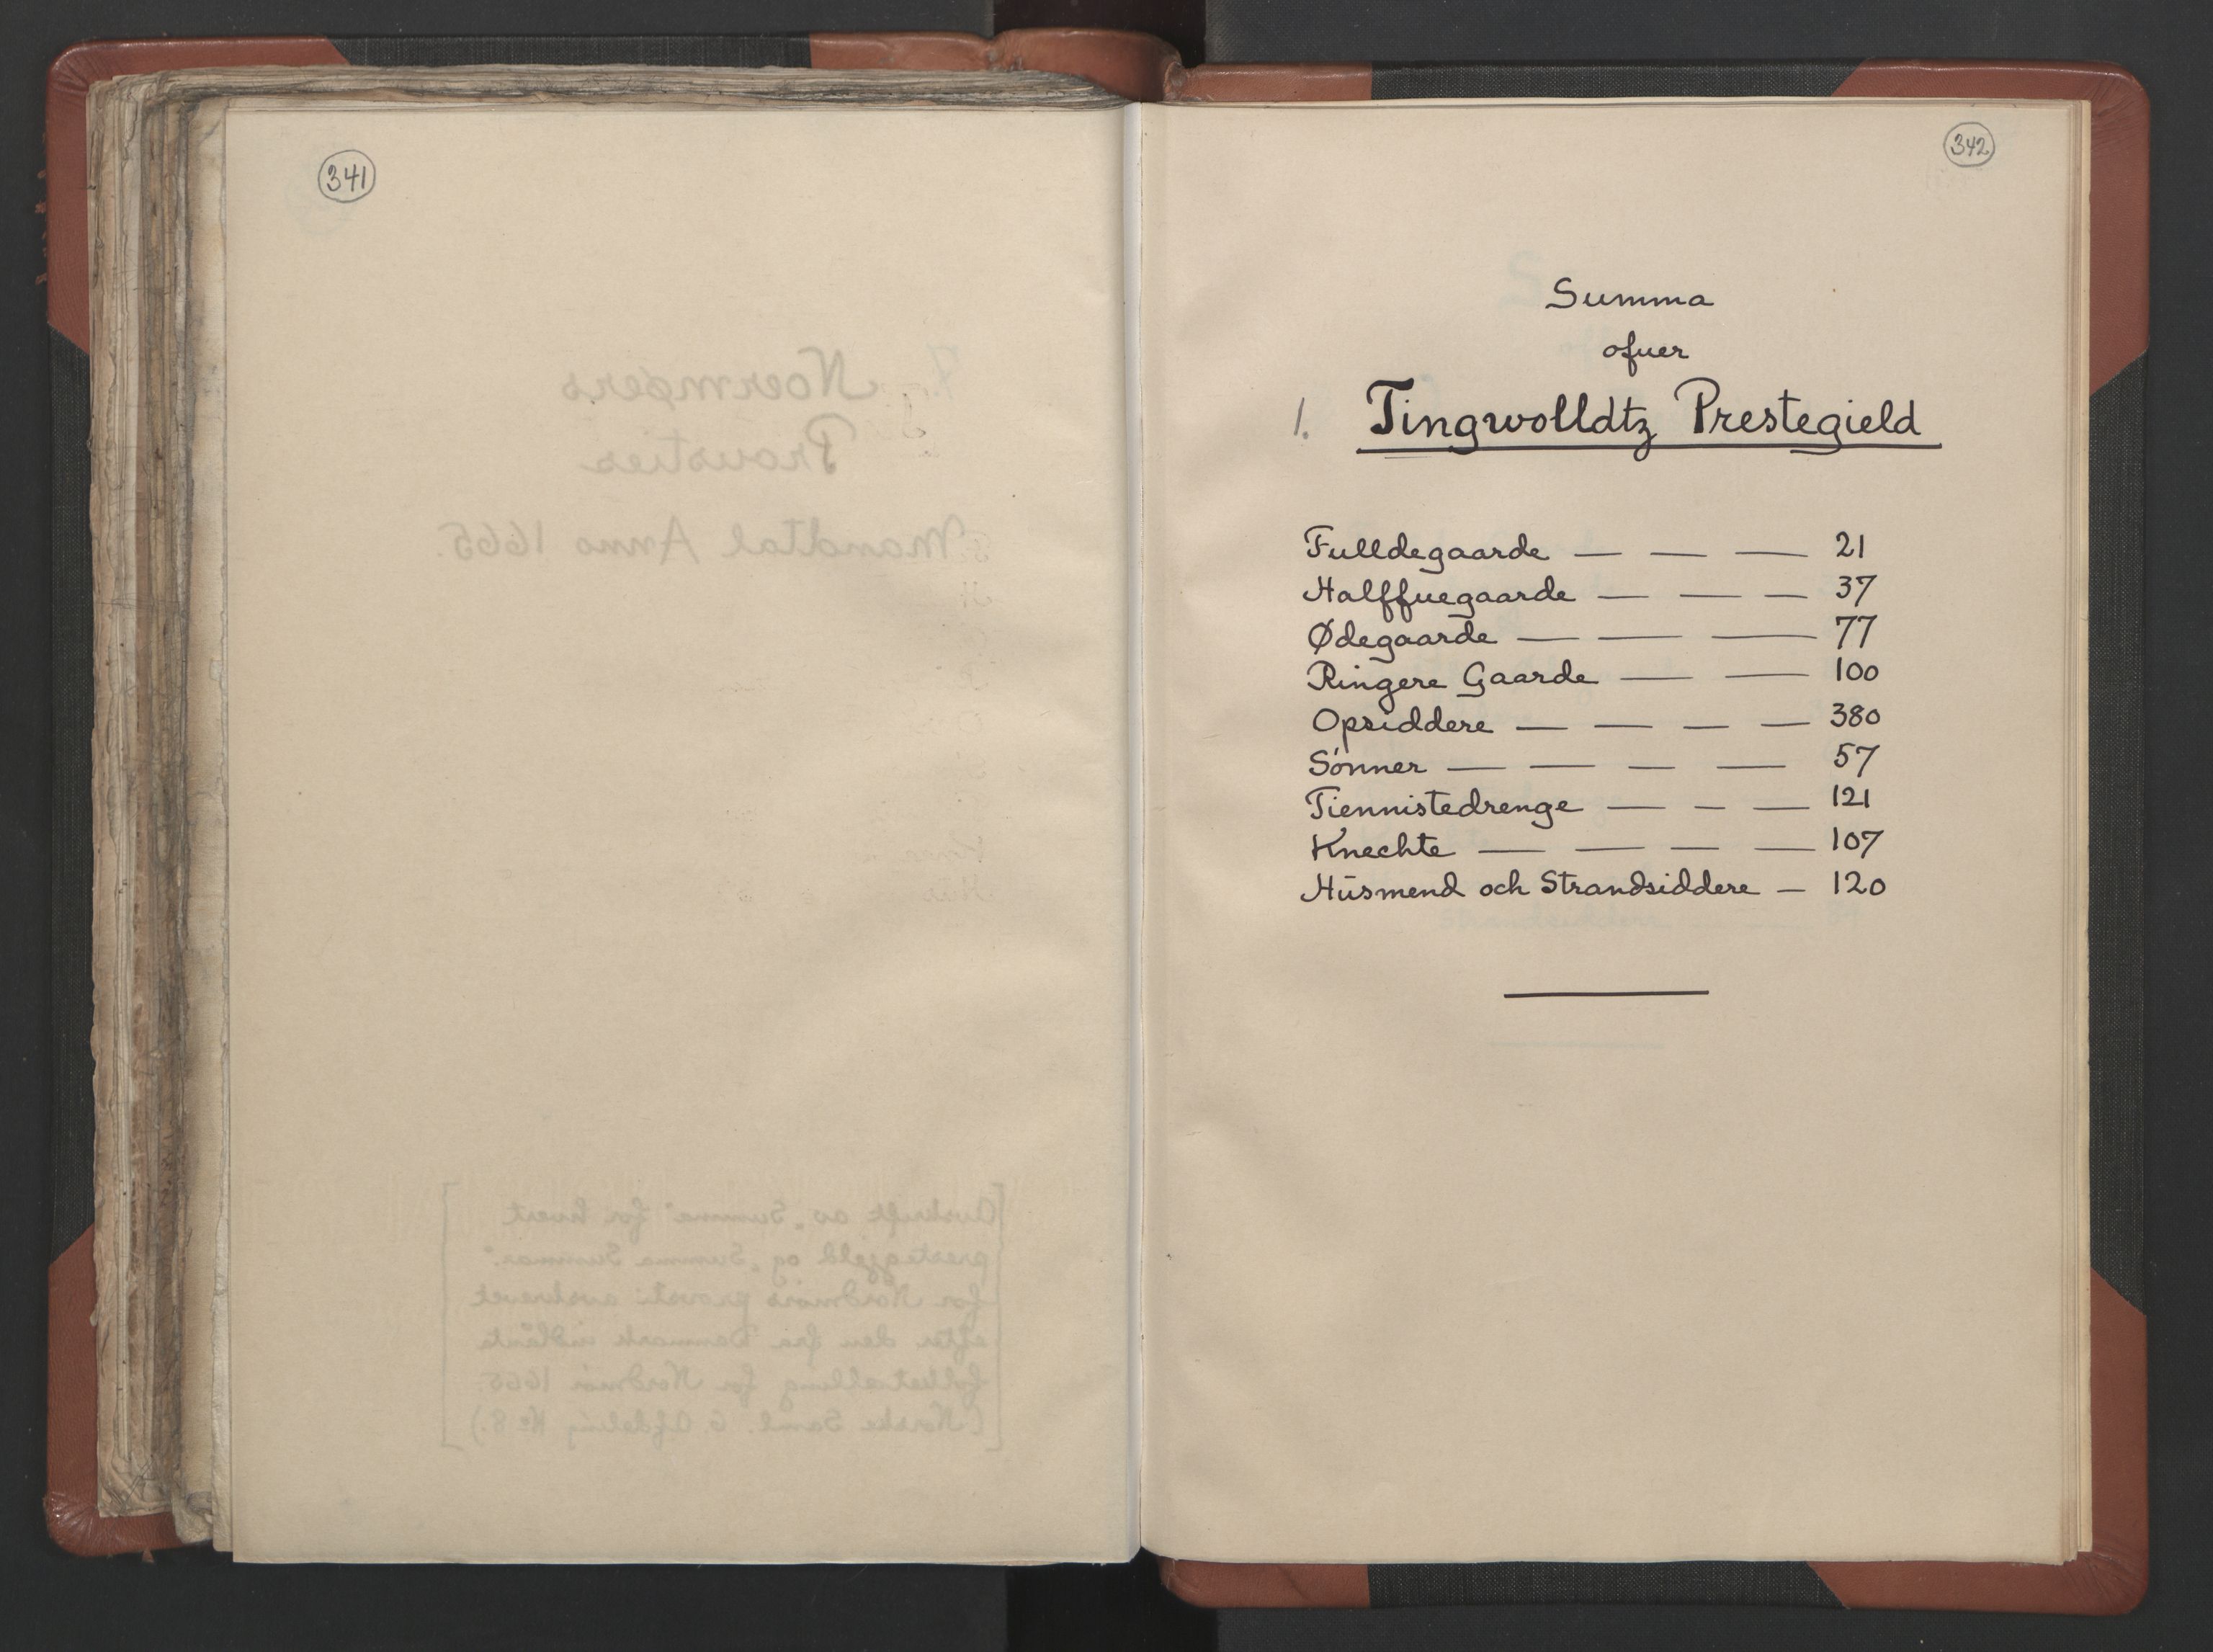 341
342
Summa
ofuer
1. Tingwolldtz Prestegield
Fulldegaarde — — — 21
Halffuegaarde — — — 37
Ødegaarde — — — 77
Ringere Gaarde — — 100
Opsiddere — — — — 380
Sónner — — — — 57
Tiennistedrenge — — — 121
Knechte — — — — 107
Húsmend och Strandsiddere — 120